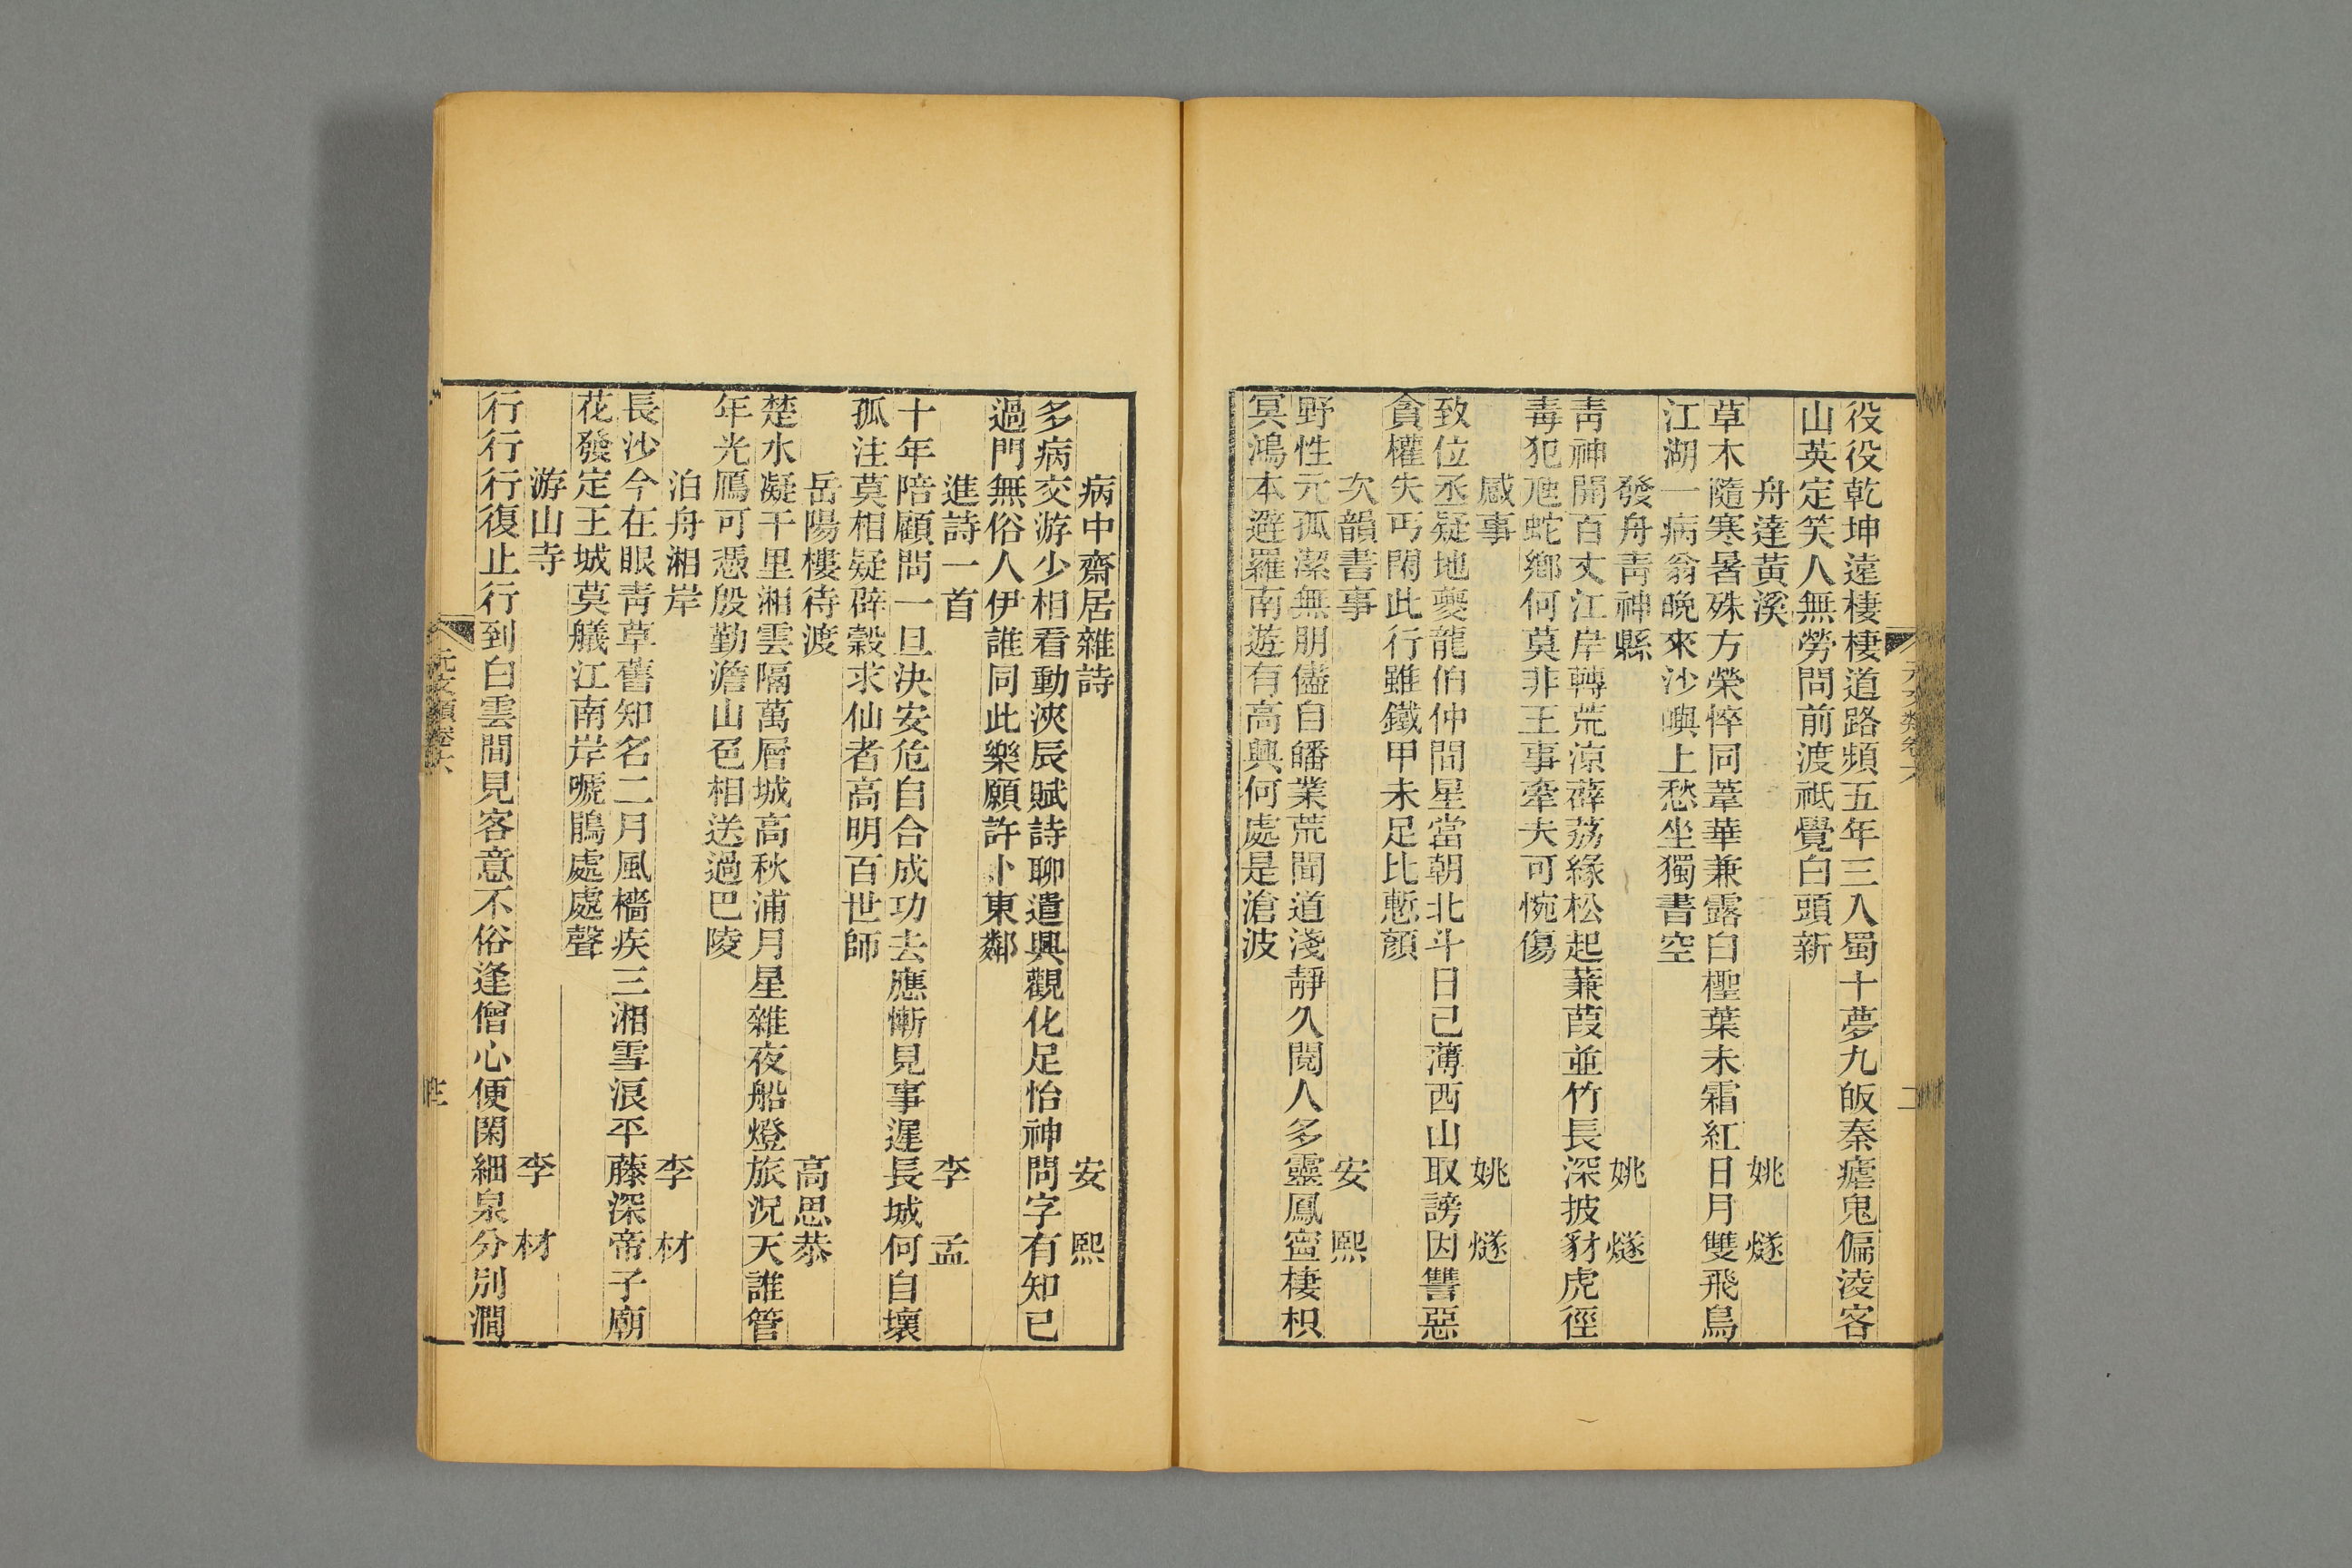 役役乾坤遠棲棲道路頻五年三入蜀十夢九皈秦瘧鬼偏淩客
山英定笑人無勞問前渡祗覺白頭新
舟達黃溪 姚燧
草木隨寒暑殊方榮悴同葦華兼露白檉葉未霜紅日月雙飛鳥
江湖一病翁晚來沙嶼上愁坐獨書空
發舟青神縣 姚燧
青神開百丈江岸轉荒涼薜荔緣松起蒹葭並竹長深披豺虎徑
毒犯虺蛇鄉何莫非王事牽夫可惋傷
感事 姚燧
致位丞疑地夔龍伯仲間星當朝北斗日已薄西山取謗因讐惡
貪權失丐閑此行雖鐵甲未足比慙顏
次韻書事 安熙
野性元孤潔無朋儘自皤業荒聞道淺靜久閱人多靈鳳寧棲枳
冥鴻本避羅南遊有高興何處是滄波
元文類卷六
病中齋居雜詩 安熙
多病交游少相看動浹辰賦詩聊遣興觀化足怡神問字有知已
過門無俗人伊誰同此樂願許卜東鄰
進詩一首 李孟
十年陪顧問一旦決安危自合成功去應慚見事遲長城何自壞
孤注莫相疑辟穀求仙者高明百世師
岳陽樓待渡 高思恭
楚水凝千里湘雲隔萬層城高秋浦月星雜夜船燈旅況天誰管
年光鴈可憑殷勤澹山色相送過巴陵
泊舟湘岸 李材
長沙今在眼青草舊知名二月風檣疾三湘雪浪平藤深帝子廟
花發定王城莫艤江南岸嗁鵑處處聲
游山寺 李材
行行行復止行到白雲間見客意不俗逢僧心便閑細泉分別澗
元文類卷六